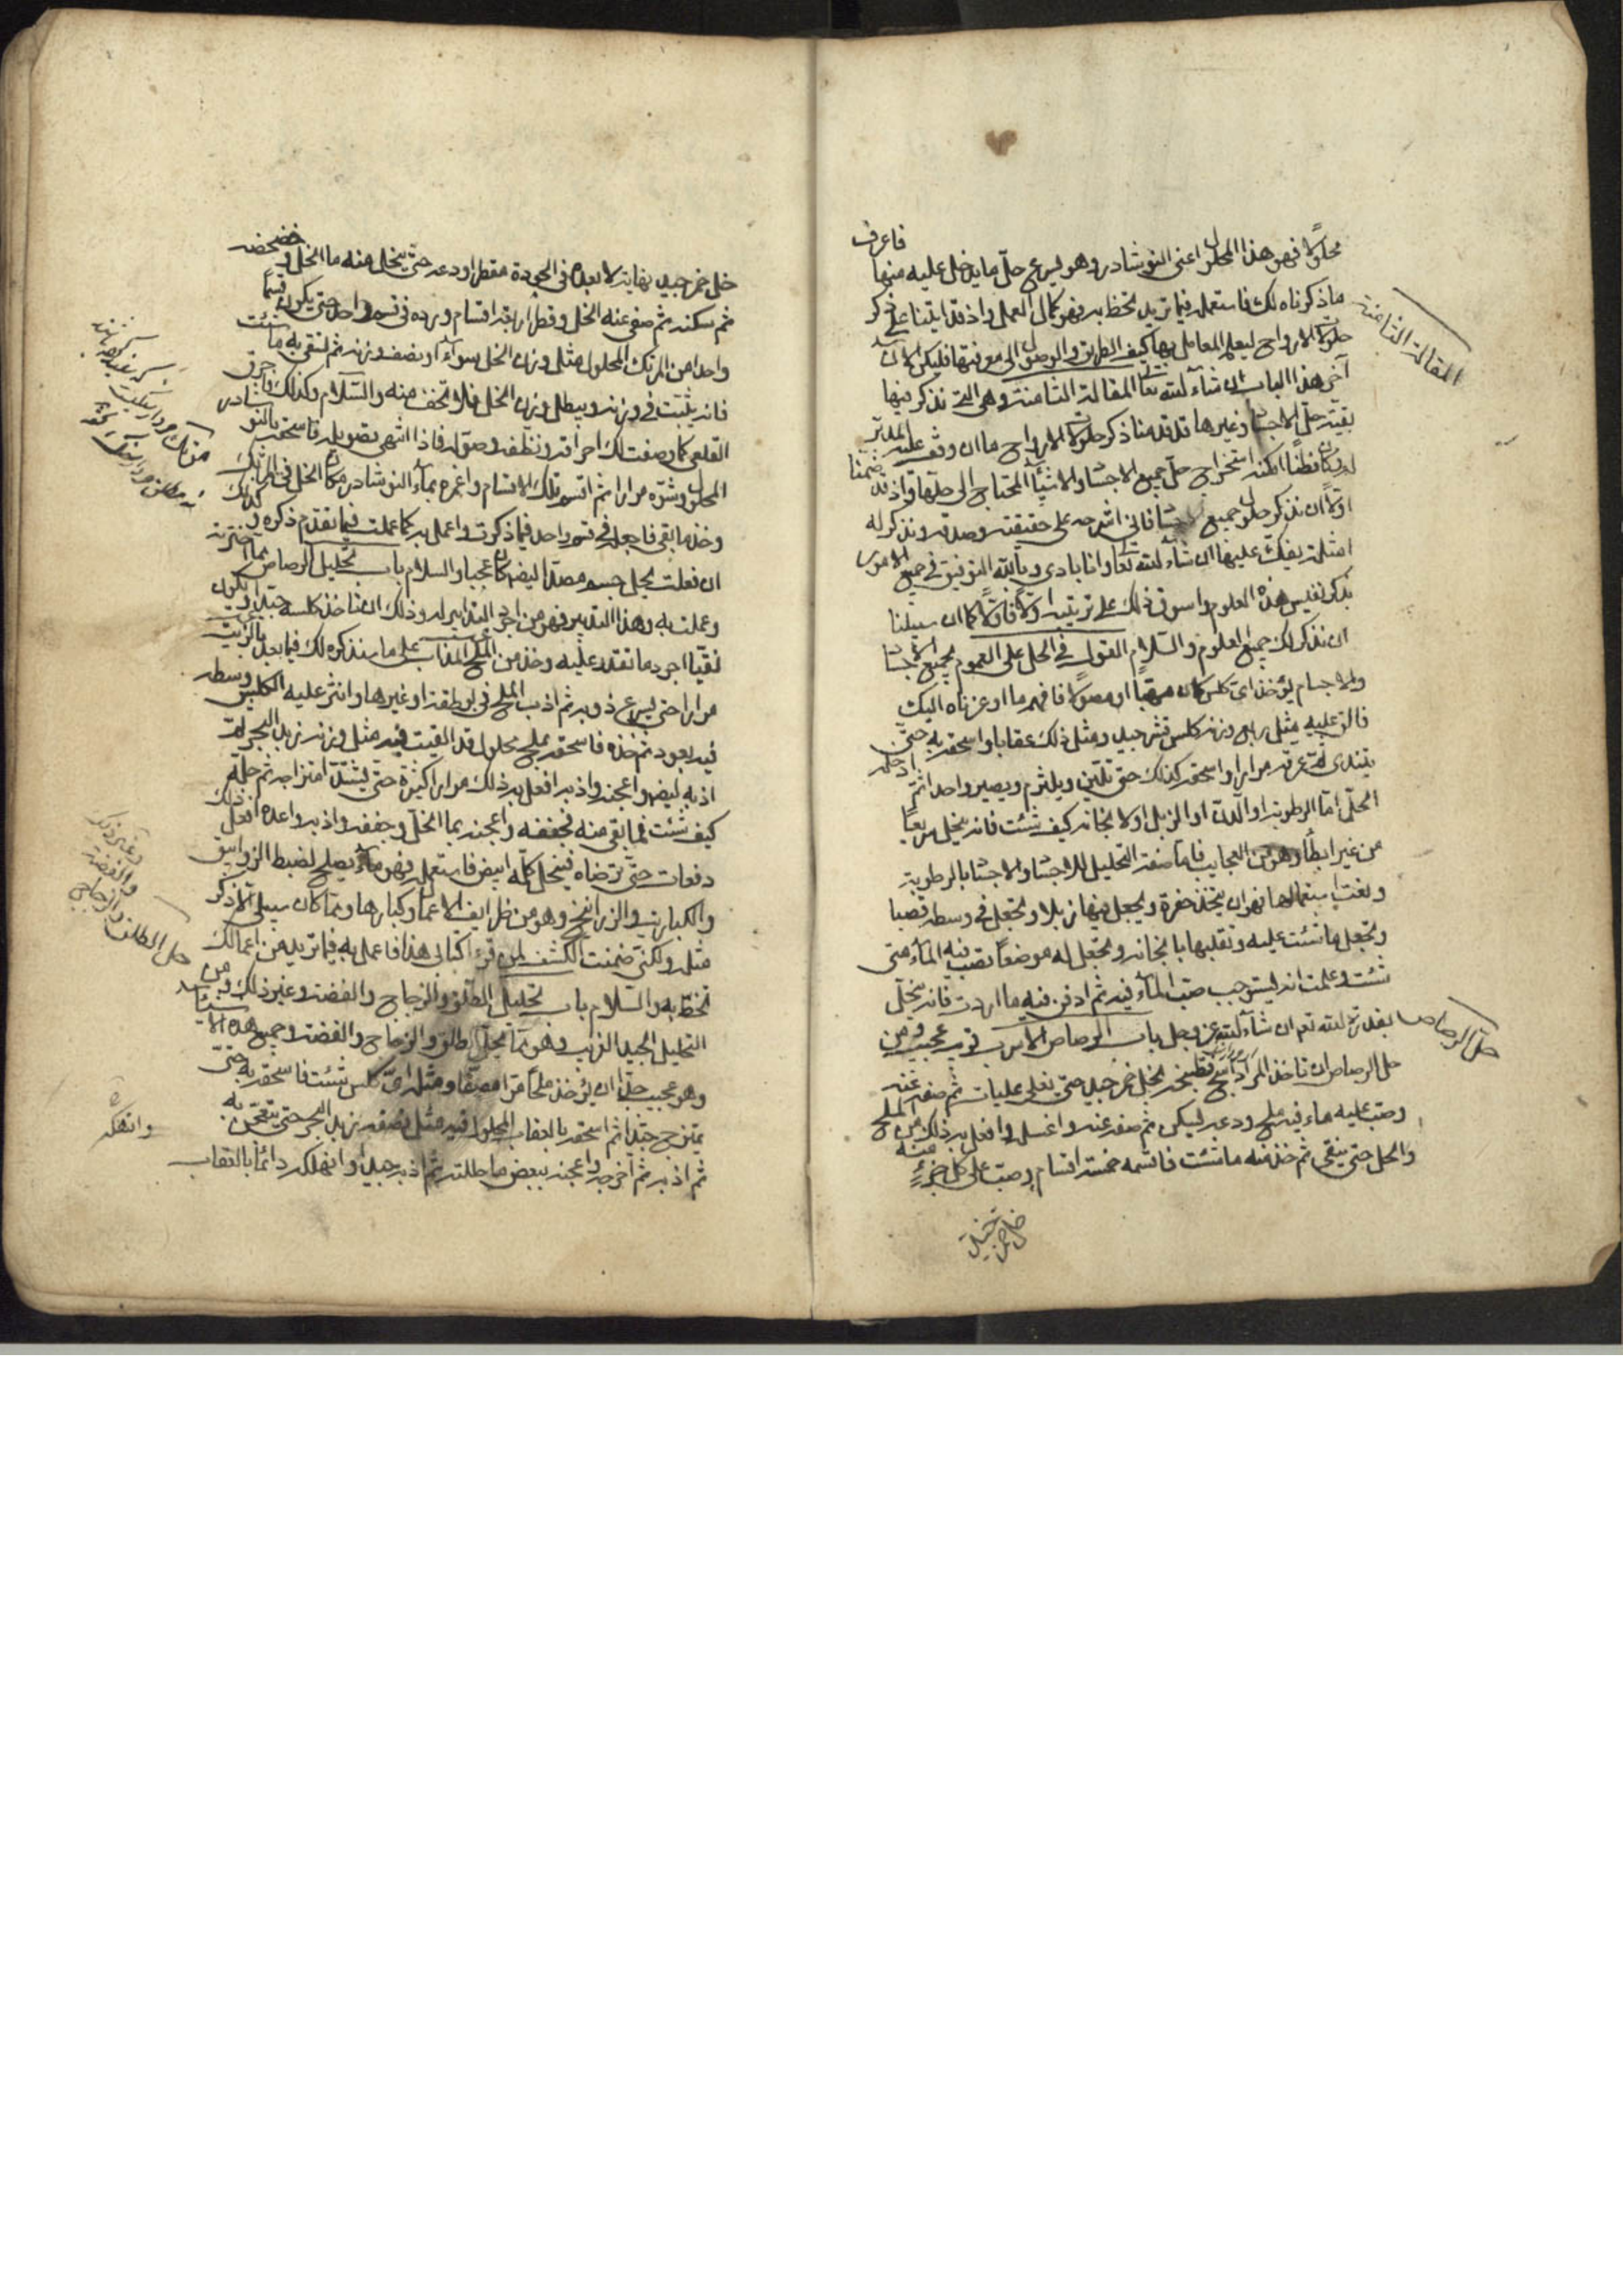 محلولا فهو هذا المحلول اعنى النوشادر وهو يسرع حل ما يدخل عليه منها فاعرف
ما ذكرناه لك فاستعمله فيما تريد تحظ به فهو كمال العمل واذ قد اتينا على ذكر
حلولات الارواح ليعلم المعامل بها كيف الطريق والوصول الى معرفتها فليكن الان
آخر هذا الباب ان شاء الله تعالى المقالة الثامنة وهى التى نذكر فيها
بقية حل الاجساد وغيرها قد قدمنا ذكر حلولات الارواح ما ان وقف عليه المدبّر
وكان فطنا امكنه استخراج حل جميع الاجساد والاشياء المحتاج الى حلها واذ قد ضمنا
اولا ان نذكر حلول جميع الاجساد فانى اشرحه على حقيقته وصدقه ونذكر له
امثلة يقف عليها ان شاء الله تعالى وانا بادى وبالله التوفيق فى جميع الامور
بذكر نفيس هذه العلوم واسوق ذلك على ترتيبه اولا فاولا كما ان سبيلنا
ان نذكر لك جميع العلوم والسلام القول فى الحل على العموم لجميع الاجساد
والاجسام يؤخذ اى كلس كان مهبّا او مصولا فافهم ما اوعزناه اليك
فالق عليه مثل ربع وزنه كلس قشر جيد ومثل ذلك عقابا واسحقه به حتى
يتندى ثم عرقه مرارا واسحقه كذلك حتى تليّن ويلتزم ويصير واحدا ثم ادخله
الحلّ امّا الرطوبة او الدنّ او الزبل اولا نجانه كيف شئت فانه ينحل سريعا
من غير ابطاء وهو من العجايب فاما صفة التحليل للاجساد والاجساد بالرطوبة
ونعت استعمالها فهو ان يتخذ حفرة ويجعل فيها زبلا وتجعل فى وسطه قصبا
وتجعل ما شئت عليه وتقلبها بانجانه وتجعل له موضعا تصب فيه الماء متى
شئت وعلمت انه ليستوجب صب الماء فيه ثم ادفن فيه ما اردت فانه ينحلّ
بقدرة الله تعم ان شاء الله عز وجل باب الرصاص الاسرب قريب عجيب ومن
حل الرصاص ان تاخذ المرداسنج فتطبخه بخل خمر جيد حتى يغلى غليات ثم صفه عنه
وصب عليه ماء فيه ملح ودعه ليكى ثم صفه عنه واغسله وافعل به ذلك من الملح
والخل حتى ينقى ثم خذ منه ما شئت فاقسمه خمسة اقسام وصب على كل جزء منه
خل خمر جيد
المقالة الثامنة
حل الرصاص
خل خمر جيد نهاية لا بعده فى الجودة مقطرا ودعه حتى ينحل منه ما انحل وخضخضه
ثم سكنه ثم صف عنه الخل وقطر اربعة اقسام ورده فى قسم واحد حتى يكون قسما
واحدا من المرتك المحلول مثل وزن الخل سواء او نصف وزنه ثم لتقى به ما شئت
فانه يثبت فى وزنه ويبطل وزن الخل فلا تخف منه والسلام وكذلك فاحرق
القلعى كما وصفت لك احراقه ونظفه وصوله فاذا انتهى تصويله فاسحقه بالنوشادر
المحلول وشوّه مرارا ثم اقسم تلك الاقسام واغمره بماء النوشادر مكان الخل فى المرتك
وخذ ما بقى فاجعله فى قسم واحد فيما ذكرت واعمل به كما عملت فيما تقدم ذكره وكذلك
ان فعلت بحل جسد مصدّا ايضا كان عجيبا والسلام باب تحليل الرصاص مما اخترته
وعملت به وهذا التدبير فهو من اجود التدابير له وذلك ان تاخذ كلسه جيدا ويكون
نقيّا اجود ما تقدر عليه وخذ من الملح المذاب على ما سنذكره لك فيما بعد بالزيت
مرارا حتى يسرع ذوبه ثم اذب الملح فى بوطقة او غيرها وانثر عليه الكلس وسطه
فيه يعود ثم خذه فاسحقه بملح محلول قد القيت فيه مثل وزنه زبد البحر ثم
اذبه ايضا واعجنه واذبه افعل به ذلك مرارا كثيرة حتى يشتدّ امتزاجه ثم حلّه
كيف شئت فما بقى منه فجففه واعجنه بما انحل وجففه واذبه واعده افعل ذلك
دفعات حتى ترضاه فينحل كله ابيض فاستعمله فهو ماء يصلح لضبط الزوابيق
والكباريت والزرانيخ وهو من ظرايف الاعمال وكبارها ومما كان سبيلى الاّ اذكر
مثله ولكنى ضمنت الكشف لمن قرأ كتابى هذا فاعمل به فيما تريد من اعمالك
تحظ به والسلام باب تحليل الطلق والزجاج والفضة وغير ذلك ومن
التحليل الجيد القريب وهو ممّا يحلّ الطلق والزجاج والفضة وجميع هذه الاشياء
وهو عجيب جدّا ان يؤخذ ملحا مرّا مصفّا ومثله اىّ كلس شئت فاسحقه به حتى
يمتزج جيّدا ثم اسحقه بالعقاب المحلول فيه مثل نصفه زبد البحر حتى يتعجّن به
ثم اذبه ثم اخرجه واعجنه ببعض ما حللته ثم اذبه جيدا وانهكه دائما بالعقاب
حل الطلق والزجاج
والفضة
وغير ذلك
وانهكه